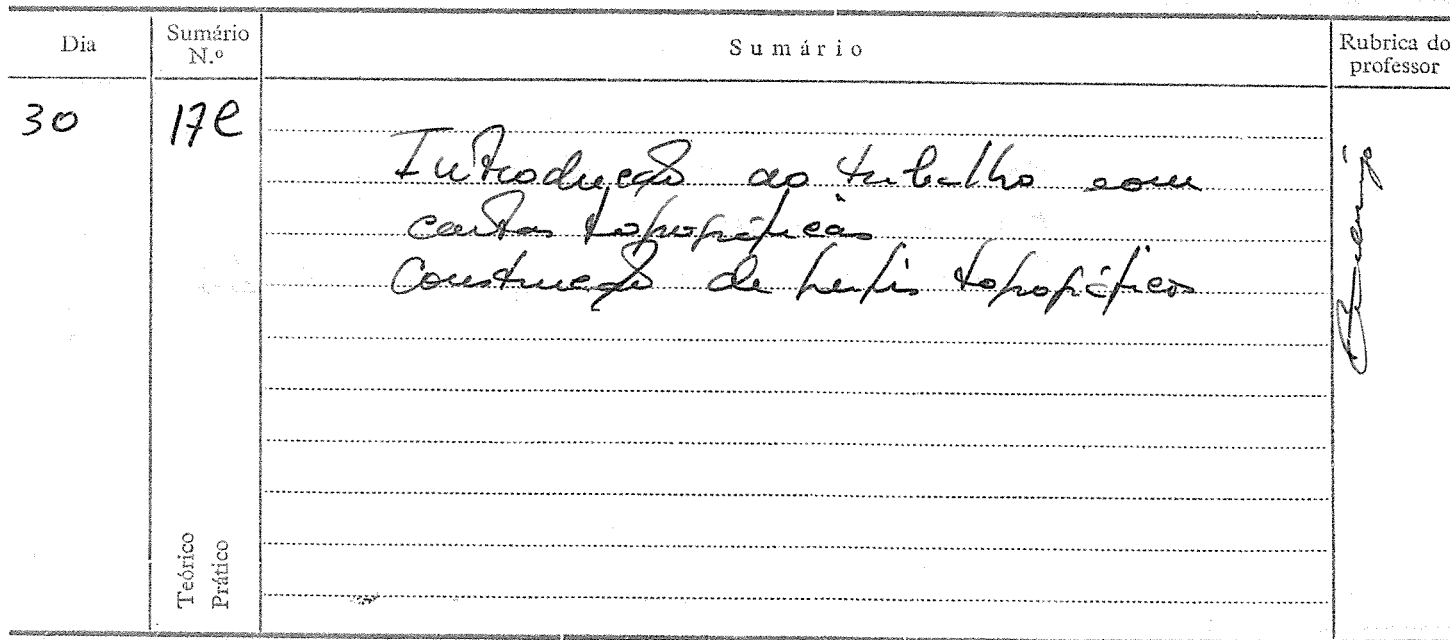 Dia
Sumário N.º
Sumário
Rubrica do professor
30
17e
Introdução ao trabalho com
cartas topográficas
Construção de perfis topográficos
Teórico
Prático